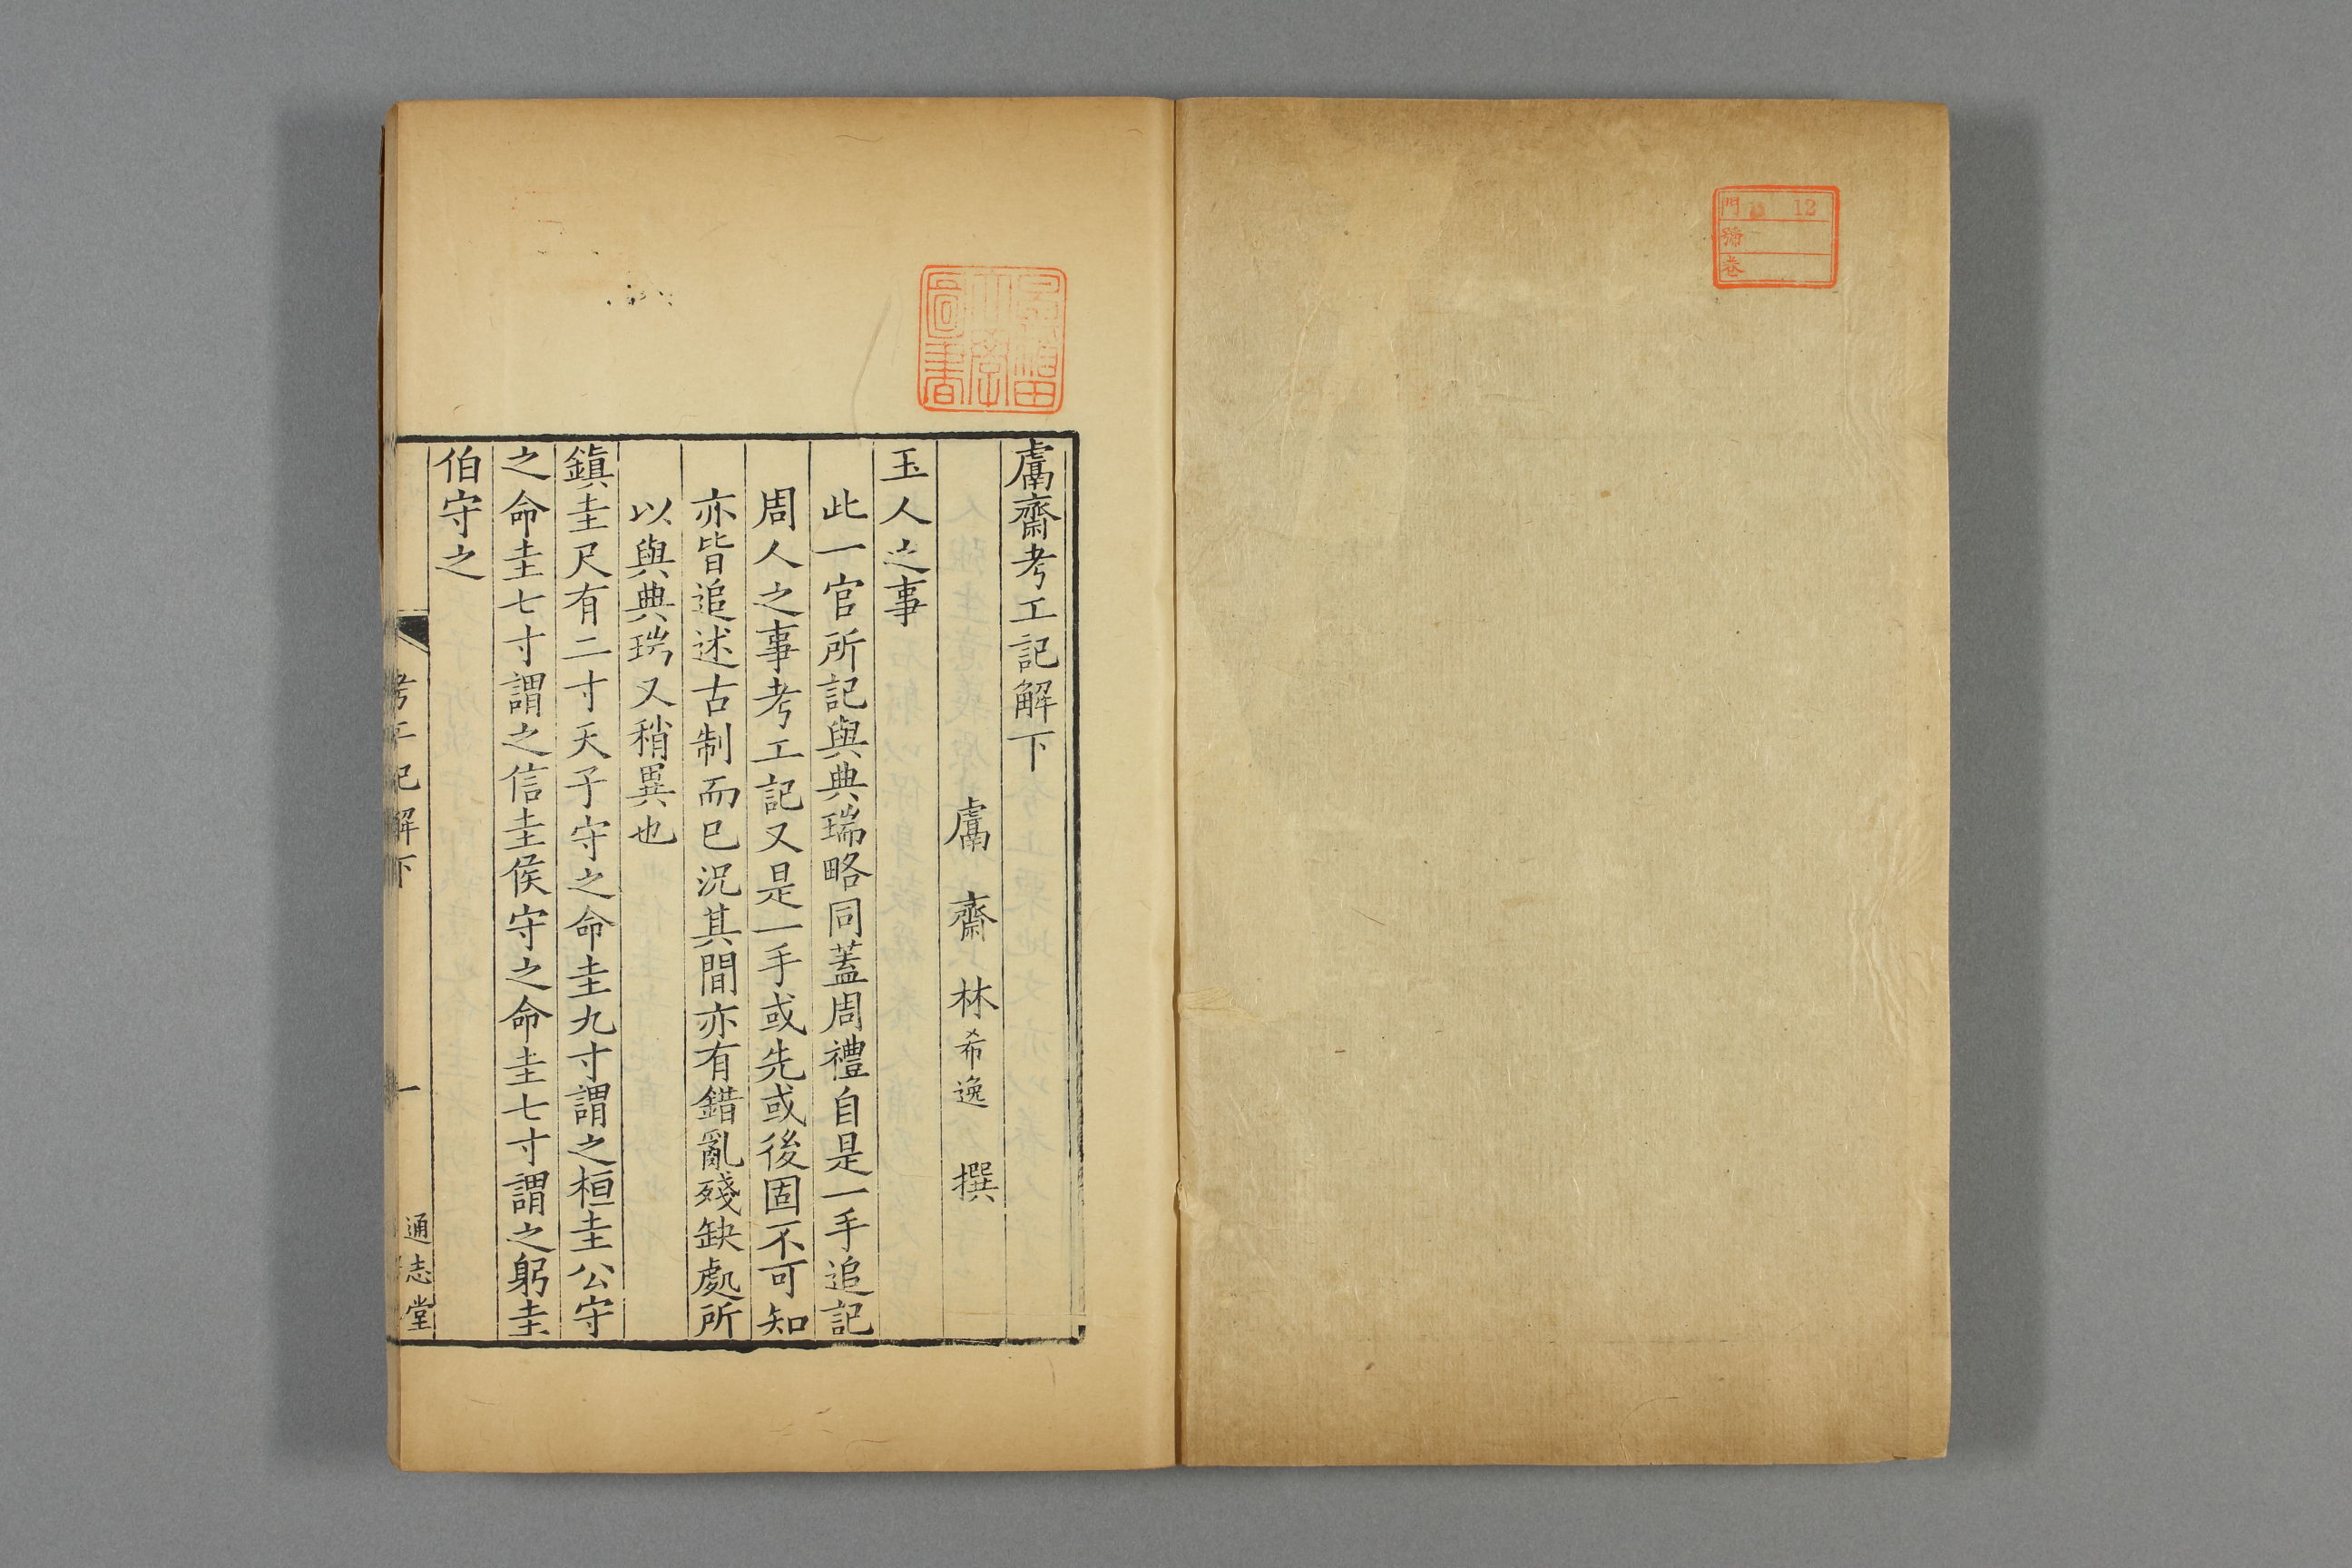 門 12
號
卷
圖書
鬳齋考工記解下
鬳齋林希逸撰
玉人之事
此一官所記與典瑞略同蓋周禮自是一手追記
周人之事考工記又是一手或先或後固不可知
亦皆追述古制而已況其間亦有錯亂殘缺處所
以與典瑞又稍異也
鎮圭尺有二寸天子守之命圭九寸謂之桓圭公守
之命圭七寸謂之信圭侯守之命圭七寸謂之躬圭
伯守之
考工記解下 一 通志堂